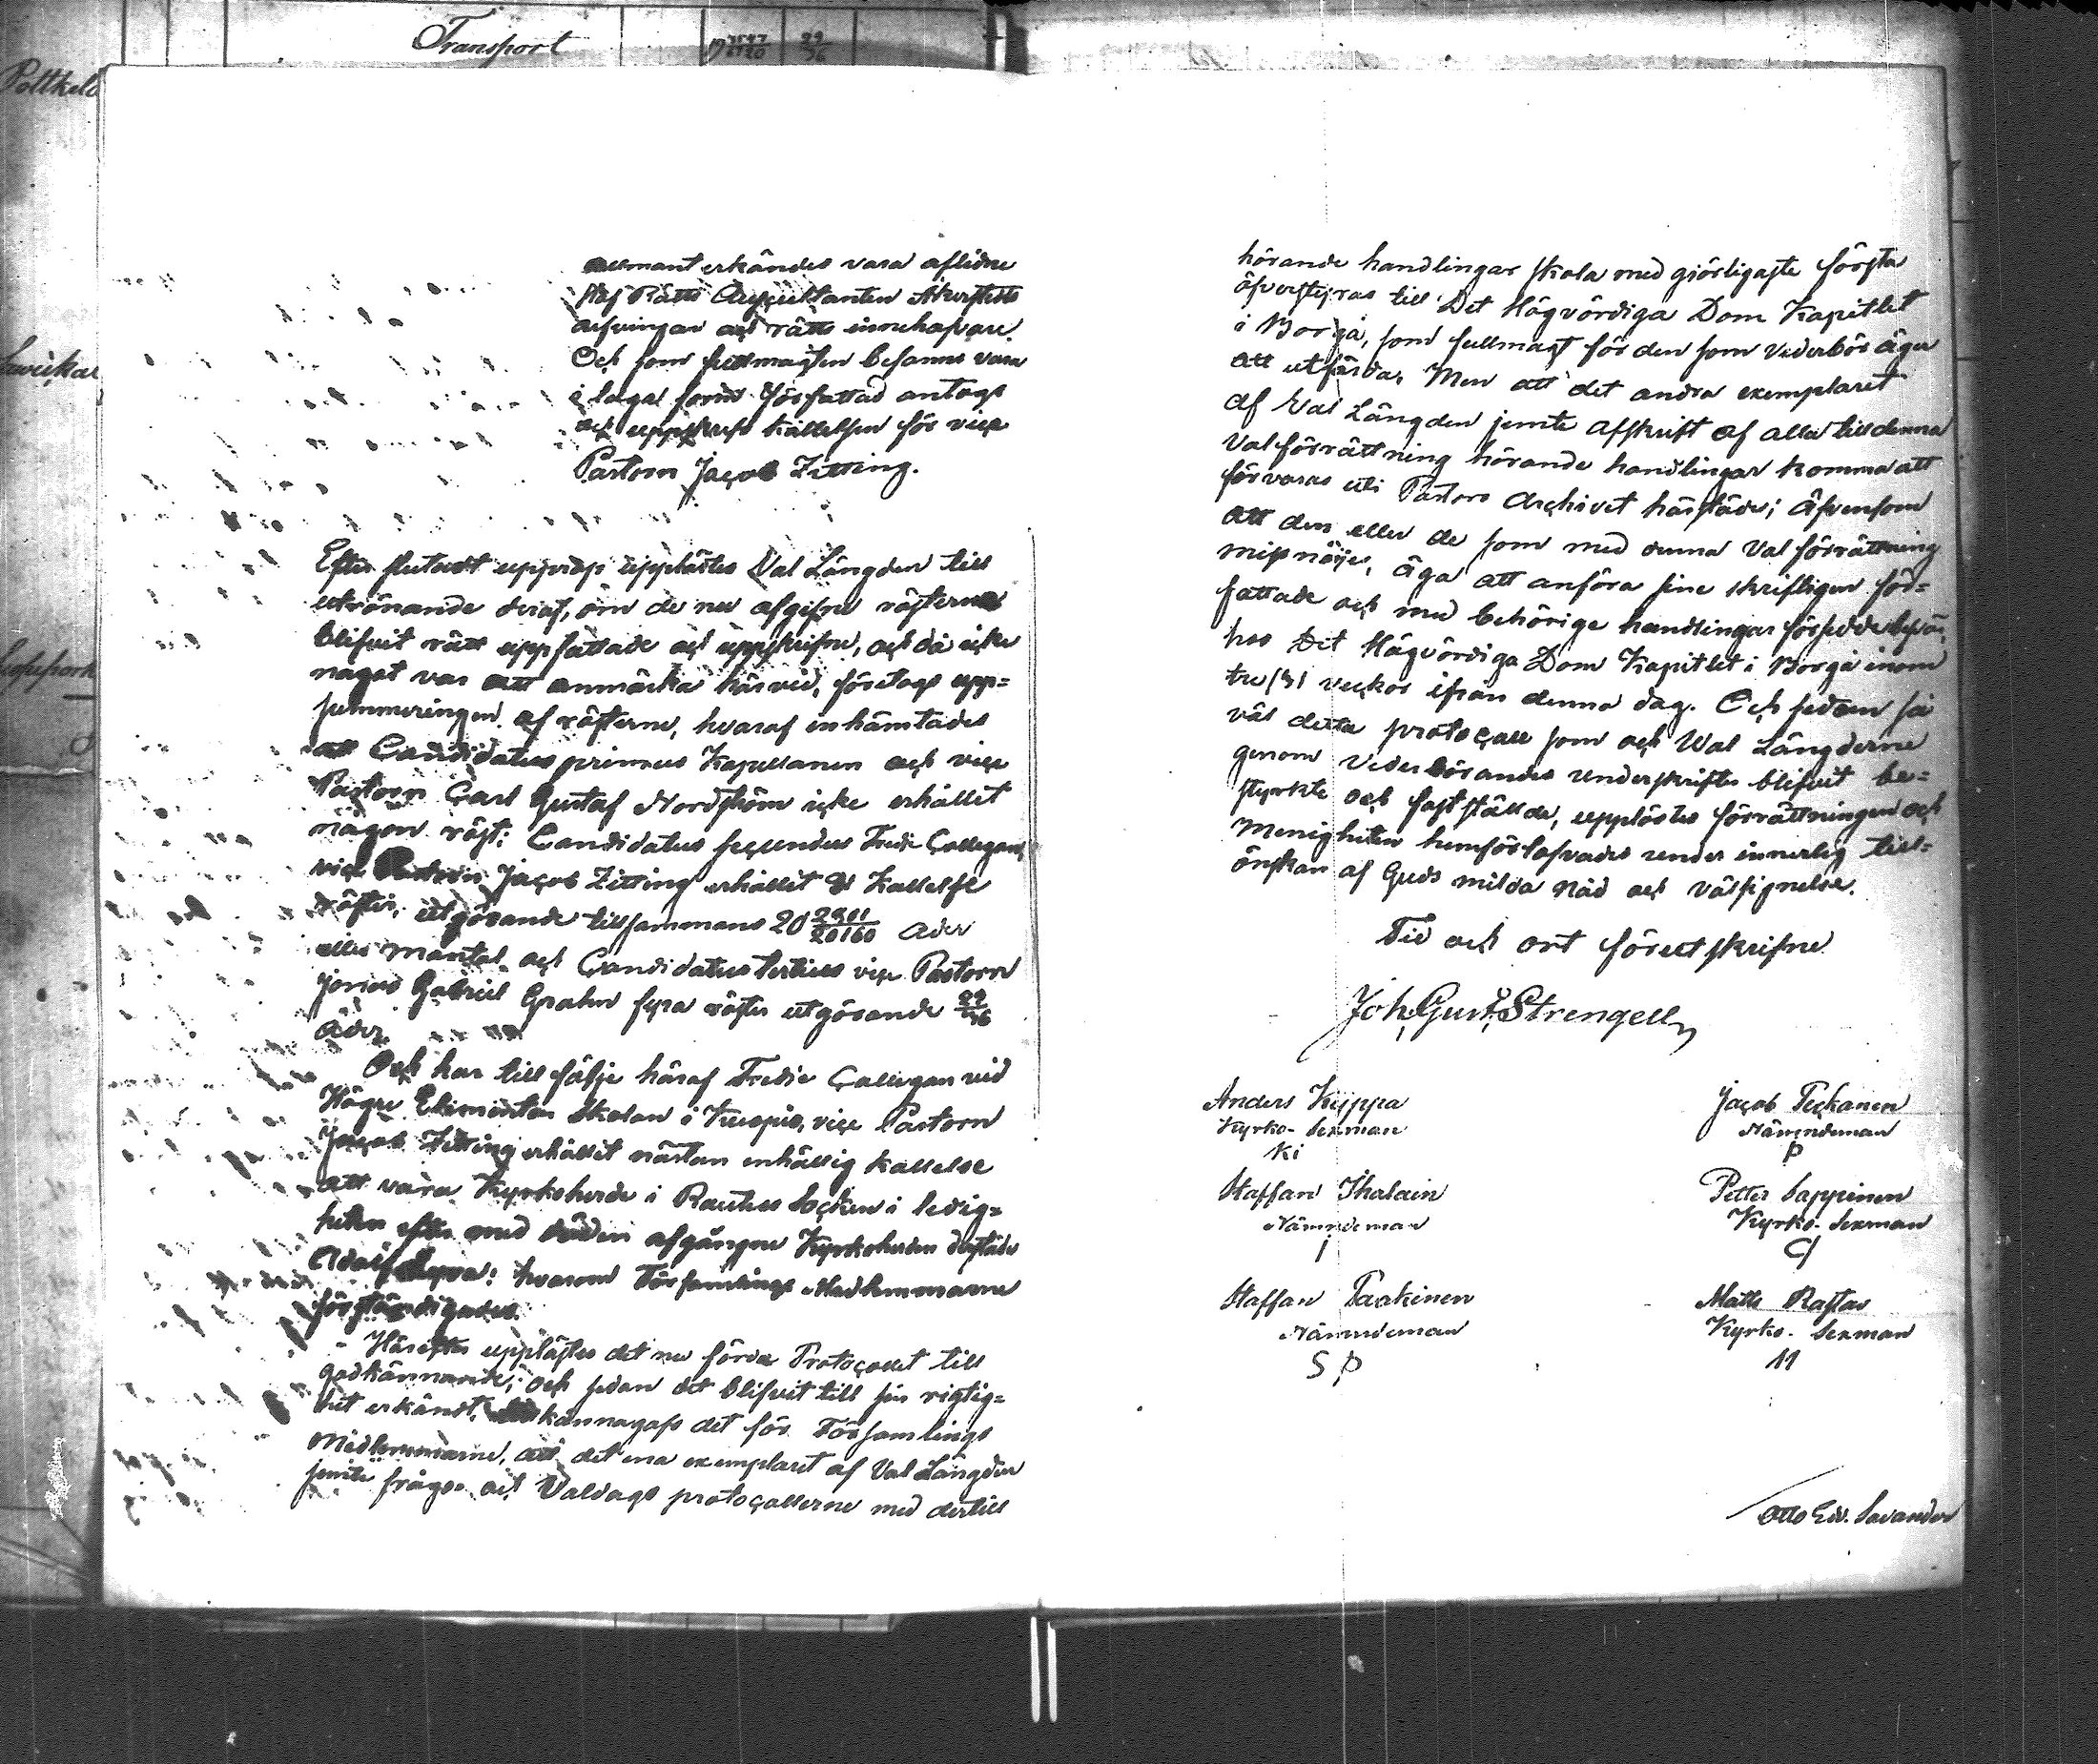 Transport
Pottkelo
allmänt erkändes vara aflidne
Hof Rätts Auscultanten Åkerstedts
arfvingar och rätts innehafvare.
Och som fullmagten befanns vara
i laga form författad antogs
och uppskrefs kallelsen för vice
Pastorn Jacob Zitting.
Efter slutadt upprop upplästes Val Längden till
utrönande deraf, om de nu afgifne rösterne
blifvit rätt uppfattade och uppskrifne, och då icke
något var att anmärka härvid, företogs upp=
summeringen af rösterne, hvaraf inhämtades
att Candidatus primus Kapellanen och vice
Pastorn Carl Gustaf Nordström icke erhållit
någon röst; Candidatus secundus Tredie Collegan,
vice Pastorn Jacob Zitting erhållit Kallelse
röster, utgörande tillsammans 20 2911/20160 Åder
eller Mantal och Candidatus tertius vice Pastorn
Jonas Gabriel Grahn fyra röster utgörande 29/96
Åder.
Och har till följe häraf Tredie Collegan vid
Högre Elementar Skolan i Kuopio, vice Pastorn
Jacob Zitting erhållit nästan enhällig kallelse
att vara Kyrkoherde i Rautus Socken i ledig=
heten efter med döden afgångne Kyrkoherden derstädes
Adolf hvarom Församlings Medlemmarne
förständigades.
Härefter upplästes det nu förda Protocollet till
godkännande; och sedan det blifvit till sin rigtig=
het erkändt, tillkännagafs det för Församlings
Medlemmarne, att det ena exemplaret af Val Längden
jemte frågo- och Valdags protocollerne med dertill
hörande handlingar skola med görligaste första
öfverstyras till Det Högvördiga Dom Kapitlet
i Borgå, som fullmagt för den som vederbör äger
att utfärda, Men att det andra exemplaret
af Val Längden jemte afskrift af alla till denna
Valförrättning hörande handlingar komma att
förvaras uti Pastors Archivet härstädes; Äfvensom
att den eller de som med denna Val förrättning
missnöijes, äga att anföra sine skrifteligen för=
fattade och med behörige handlingar försedde besvär
hos Det Högvördiga Dom Kapitlet i Borgå inom
tre (3) veckor ifrån denna dag. Och sedan så
väl detta protocoll som och Val Längderne
genom Vederbörandes underskrifter blifvit be=
styrkte och fastställde, upplöstes förrättningen och
Menigheten hemförlofvades under innerlig till=
önskan af Guds milda Nåd och välsignelse.
Tid och ort förutskrifne
Joh. Gust. Strengell
Anders Kyppa
Kyrko- Sexman
Ki
Jacob Peckanen
Nämndeman
P
Staffan Ihalain
Nämndeman
I
Petter Sappinen
Kyrko- Sexman
Staffan Paakinen
Nämndeman
S P
Matts Rastas
Kyrko- Sexman
M
Otto Edv. Savander